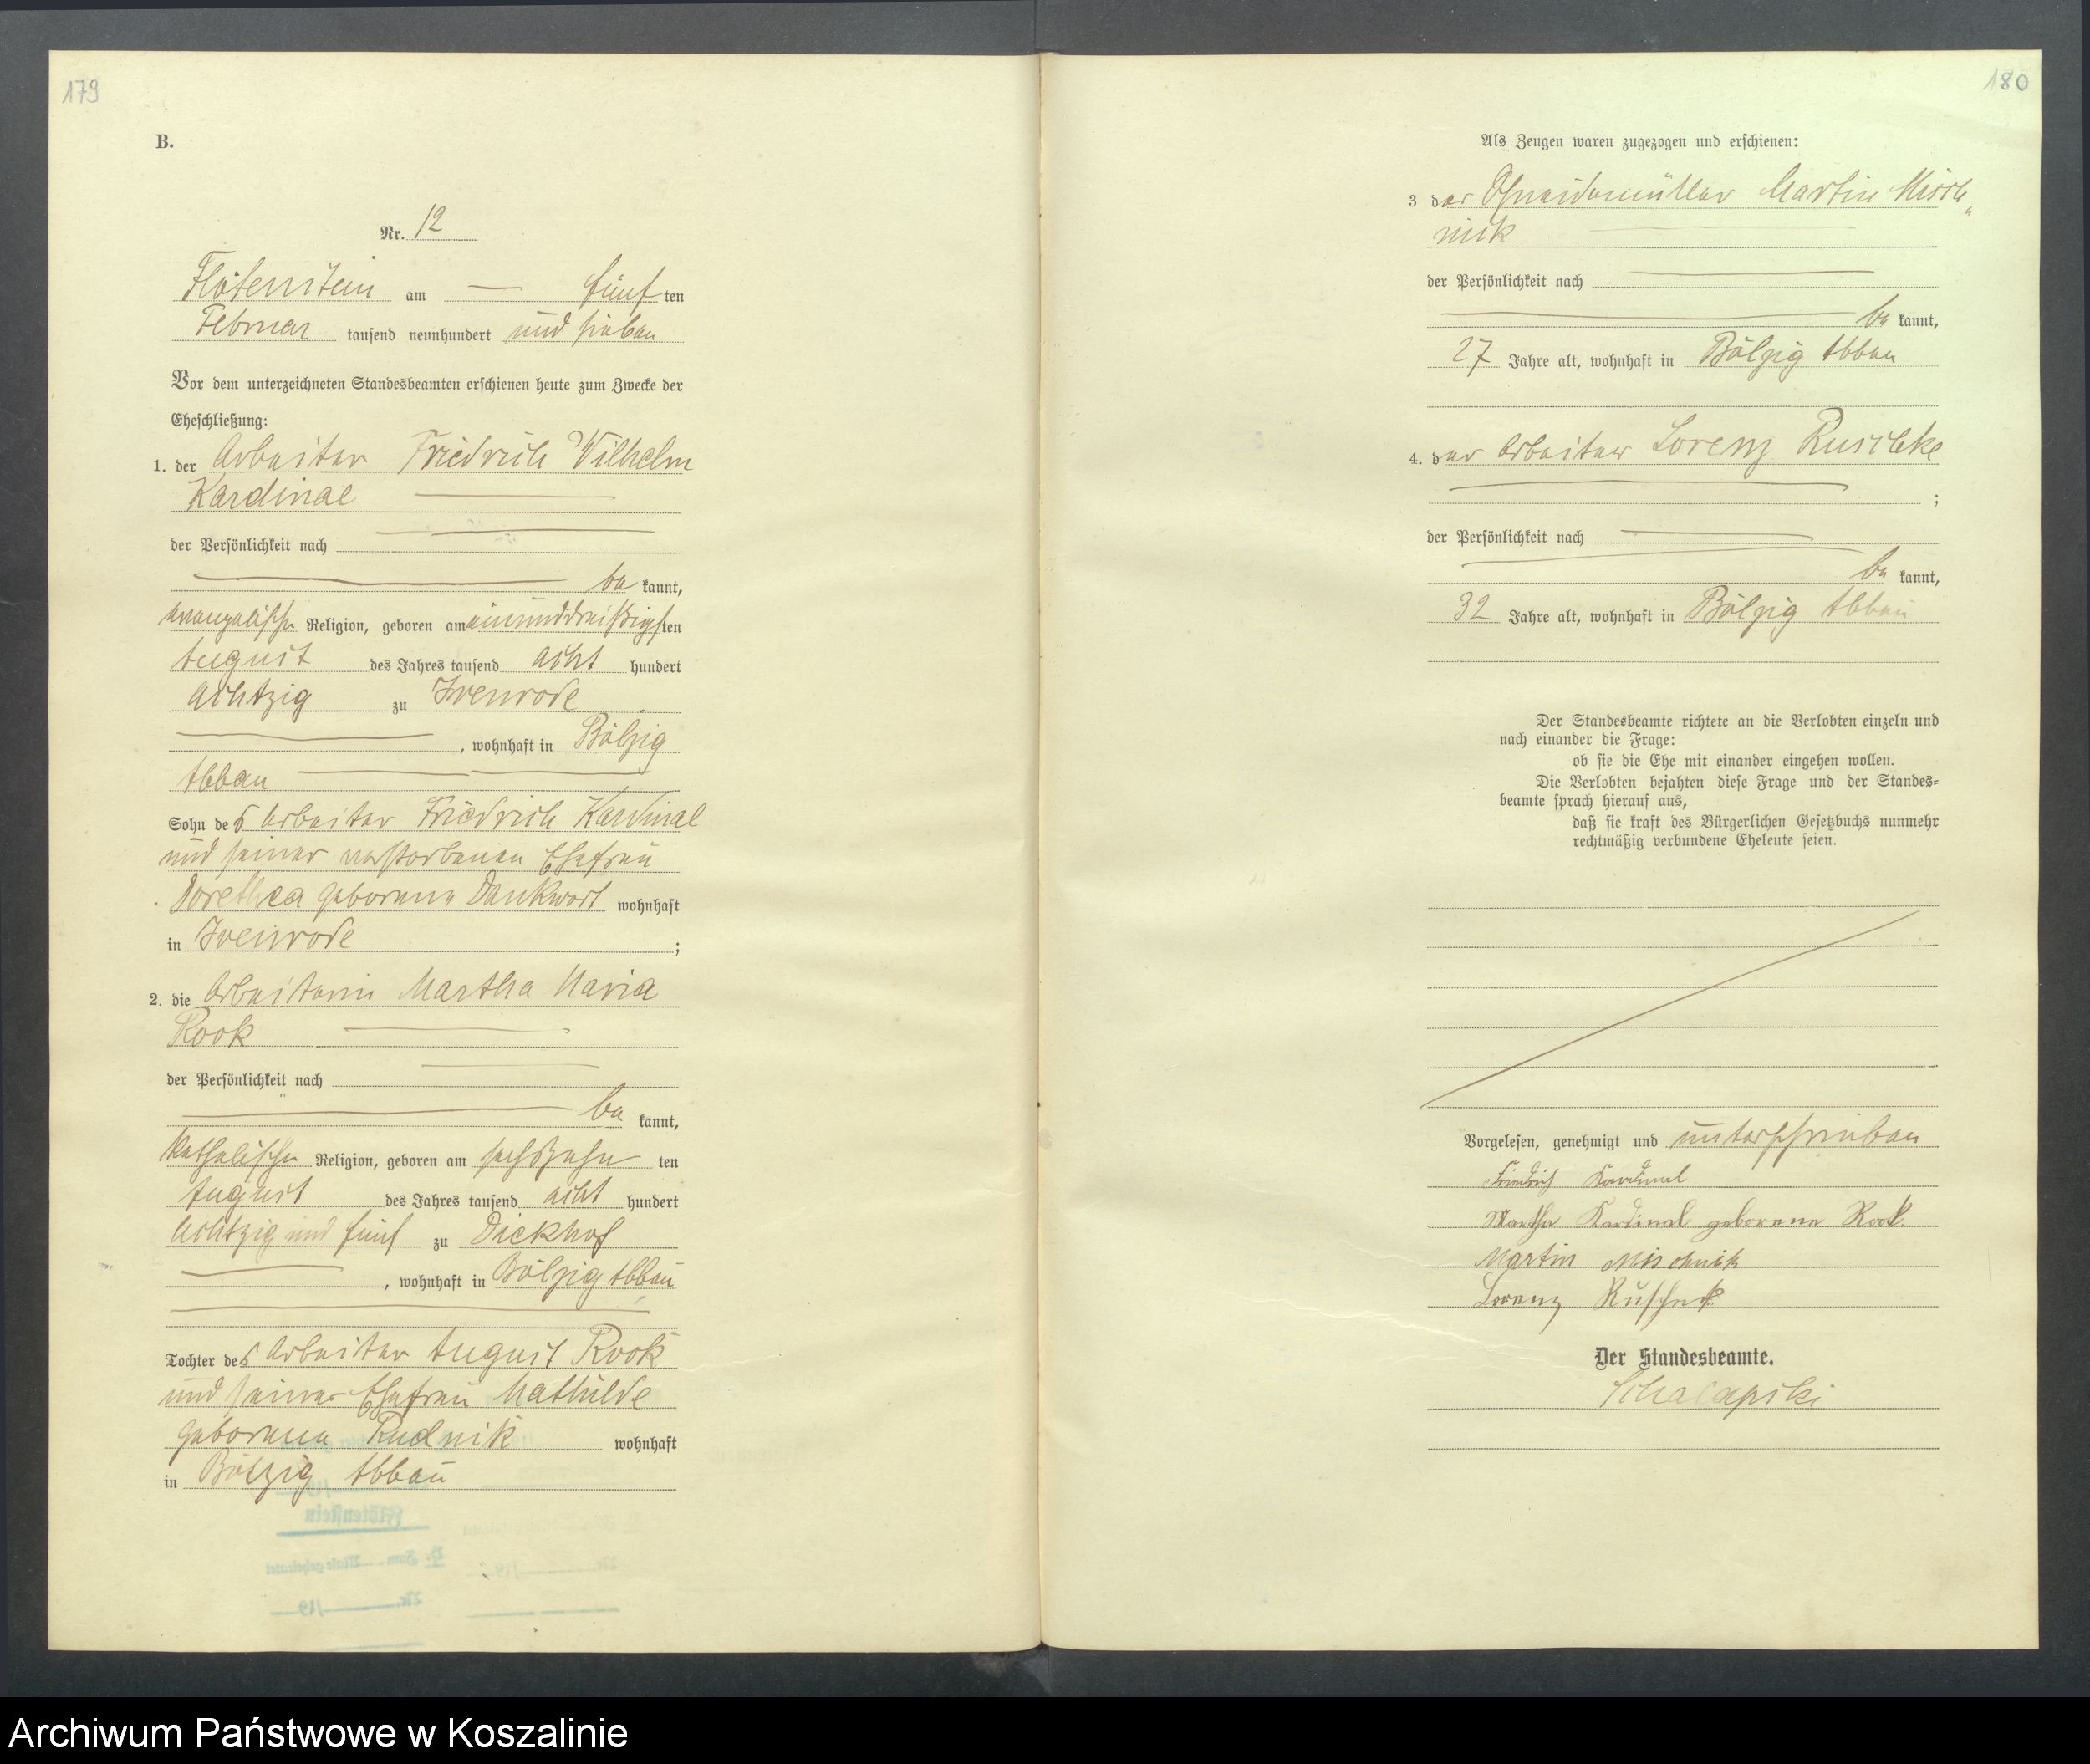 179
B.
Nr. 12
Flötenstein am — fünf ten
Februar tausend neunhundert und sieben
Vor dem unterzeichneten Standesbeamten erschienen heute zum Zwecke der
Eheschließung:
1. der Arbeiter Friedrich Wilhelm
Kardinal
der Persönlichkeit nach
be kannt,
evangelischer Religion, geboren am einunddreißigsten
August des Jahres tausend acht hundert
achtzig zu Ivenrode
, wohnhaft in Bölzig
Abbau
Sohn des Arbeiter Friedrich Kardinal
und seiner verstorbenen Ehefrau
Dorethea geborene Dankwort wohnhaft
in Ivenrode ;
2. die Arbeiterin Martha Maria
Rook
der Persönlichkeit nach
be kannt,
katholischer Religion, geboren am sechszehn ten
August des Jahres tausend acht hundert
achtzig und fünf zu Dickhof
, wohnhaft in Bölzig Abbau
Tochter des Arbeiter August Rook
und seiner Ehefrau Mathilde
geborene Rudnik wohnhaft
in Bölzig Abbau
Flötenstein
180
Als Zeugen waren zugezogen und erschienen:
3 der Schneidemüller Martin Misch„
nik
der Persönlichkeit nach
be kannt,
27 Jahre alt, wohnhaft in Bölzig Abbau
4. der Arbeiter Lorenz Ruschke
;
der Persönlichkeit nach
be kannt,
32 Jahre alt, wohnhaft in Bölzig Abbau
Der Standesbeamte richtete an die Verlobten einzeln und
nach einander die Frage:
ob sie die Ehe mit einander eingehen wollen.
Die Verlobten bejahten diese Frage und der Standes-
beamte sprach hierauf aus,
daß sie kraft des Bürgerlichen Gesetzbuchs nunmehr
rechtmäßig verbundene Eheleute seien.
Vorgelesen, genehmigt und unterschrieben
Friedrich Kardinal
Martha Kardinal geborene Rook.
Martin Mischnik
Lorenz
Der Standesbeamte.
Archiwum Państwowe w Koszalinie